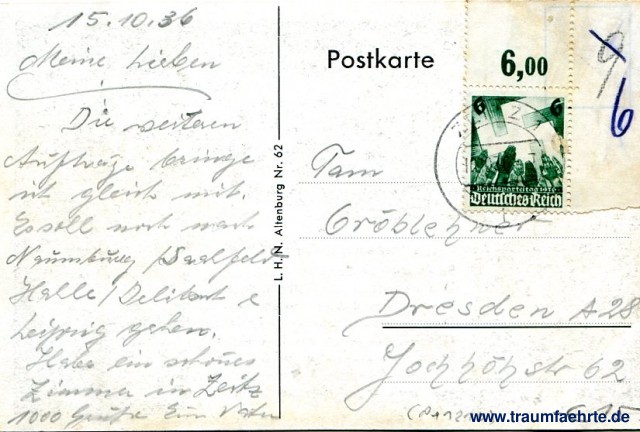 15.10.36
Meine Lieben
Die weiteren
Aufträge bringe
ich gleich mit.
Es soll noch nach
Naumburg / Saalfeld
Halle / Delitzsch &
Leipzig gehen.
Habe ein schönes
Zimmer in Zeitz
1000 Grüße Euer Vater
L. H. N. Altenburg Nr. 62
Postkarte
6,00
9
6
6 6
Reichsparteitag 1936
Deutsches Reich
Fam
Gröblehner
Dresden A 28
62
www.traumfaehrte.de